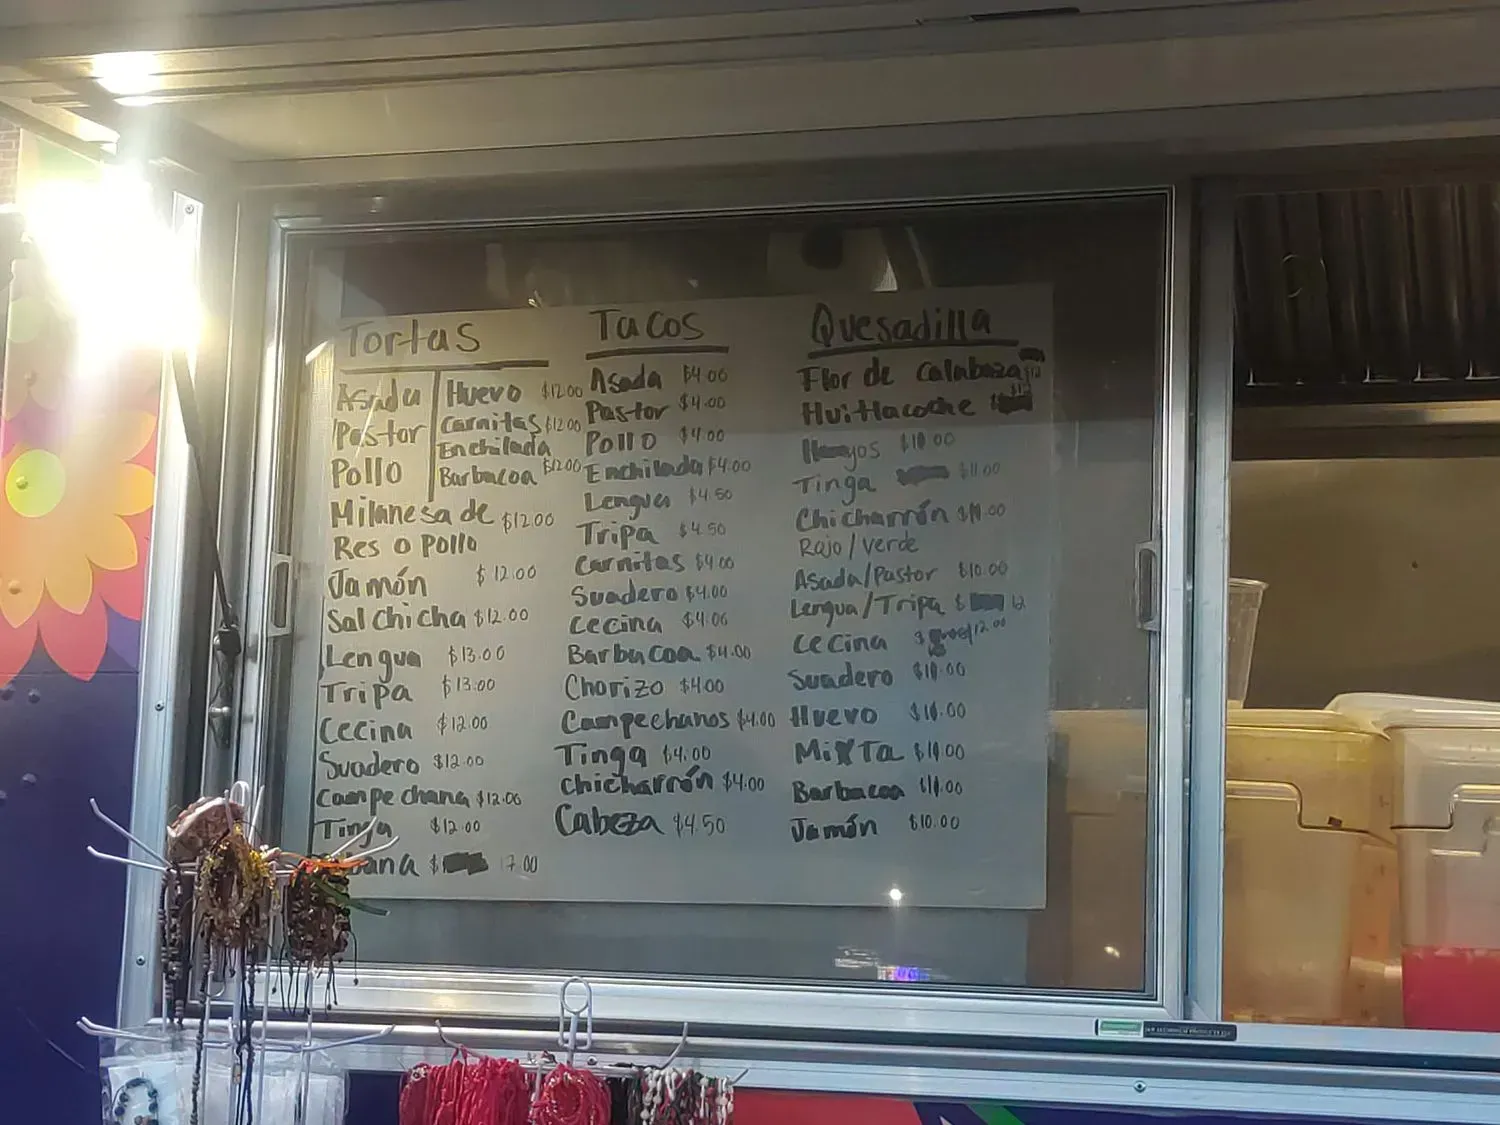 Tortas
Asada
Pastor
Pollo
Huevo $12.00
Carnitas $12.00
Enchilada
Barbacoa $12.00
Milanesa de $12.00
Res o Pollo
Jamón $12.00
Salchicha $12.00
Lengua $13.00
Tripa $13.00
Cecina $12.00
Suadero $12.00
Campechana $12.00
Tinga $12.00
bana $ 17.00
Tacos
Asada $4.00
Pastor $4.00
Pollo $4.00
Enchilada $4.00
Lengua $4.50
Tripa $4.50
Carnitas $4.00
Suadero $4.00
Cecina $4.00
Barbacoa $4.00
Chorizo $4.00
Campechanos $4.00
Tinga $4.00
Chicharrón $4.00
Cabeza $4.50
Quesadilla
Flor de Calabaza $12
Huitlacoche $12
$10.00
Tinga $11.00
Chicharrón
Rojo/Verde
Asada/Pastor $10.00
Lengua/Tripa $ 12
Cecina $ 12.00
Suadero
Huevo
Mixta
Barbacoa
Jamón $10.00